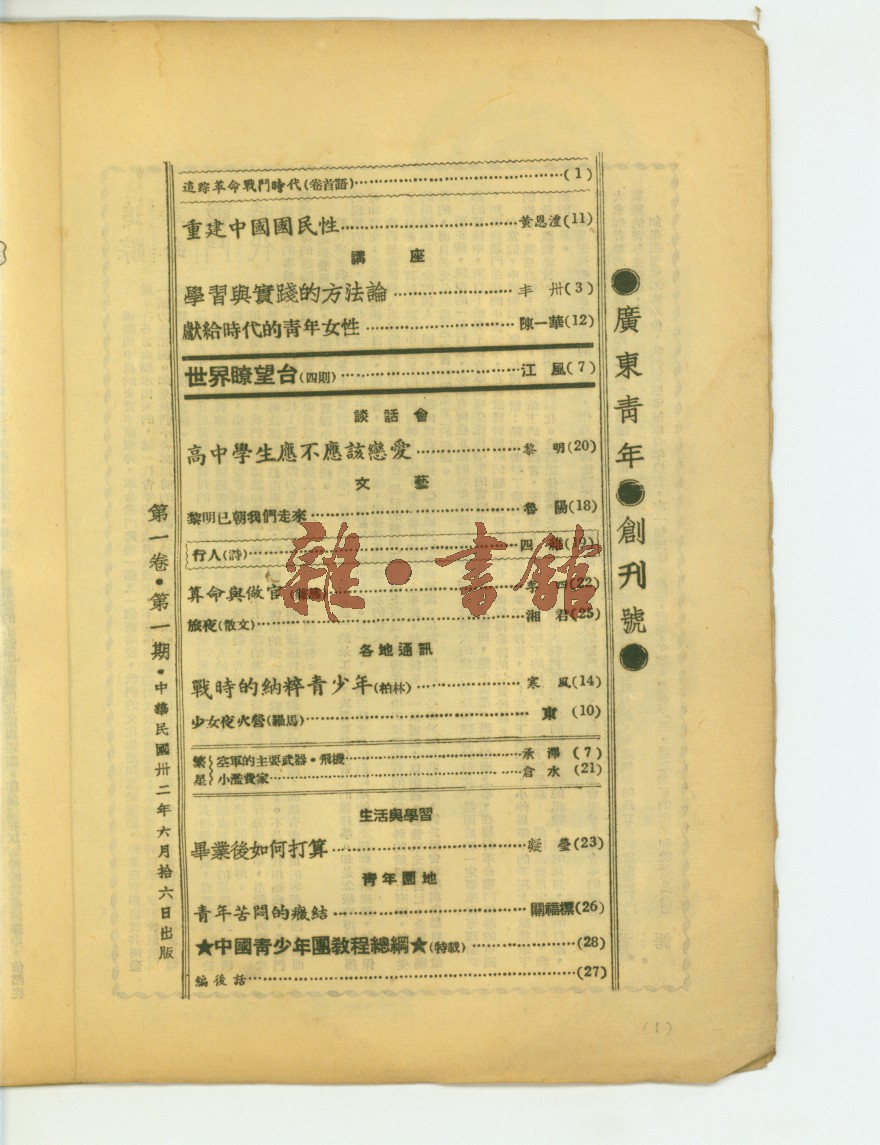 ●廣東靑年●創刊號●
追踪革命戰鬥時代(卷首語)……(1)
重建中國國民性……黃恩澧(11)
講座
學習與實踐的方法論……丰卅(3)
獻給時代的靑年女性……陳一華(12)
世界瞭望台(四則)……江風(7)
談話會
高中學生應不應該戀愛……黎明(20)
文藝
黎明已朝我們走來……魯陽(18)
行人(詩)……四(19)
算命與做官……李四(22)
旅夜(散文)……湘君(25)
各地通訊
戰時的納粹靑少年(柏林)……寒風(14)
少女夜火營(羅馬)……東(10)
繁星
空軍的主要武器•飛機……承澤(7)
小濫費家……倉水(21)
生活與學習
畢業後如何打算……凝瑩(23)
靑年園地
靑年苦悶的癥結……關福標(26)
★中國靑少年團敎程總綱★(特載)……(28)
編後話……(27)
第一卷•第一期•中華民國卅二年六月拾六日出版
(1)
雜•書館